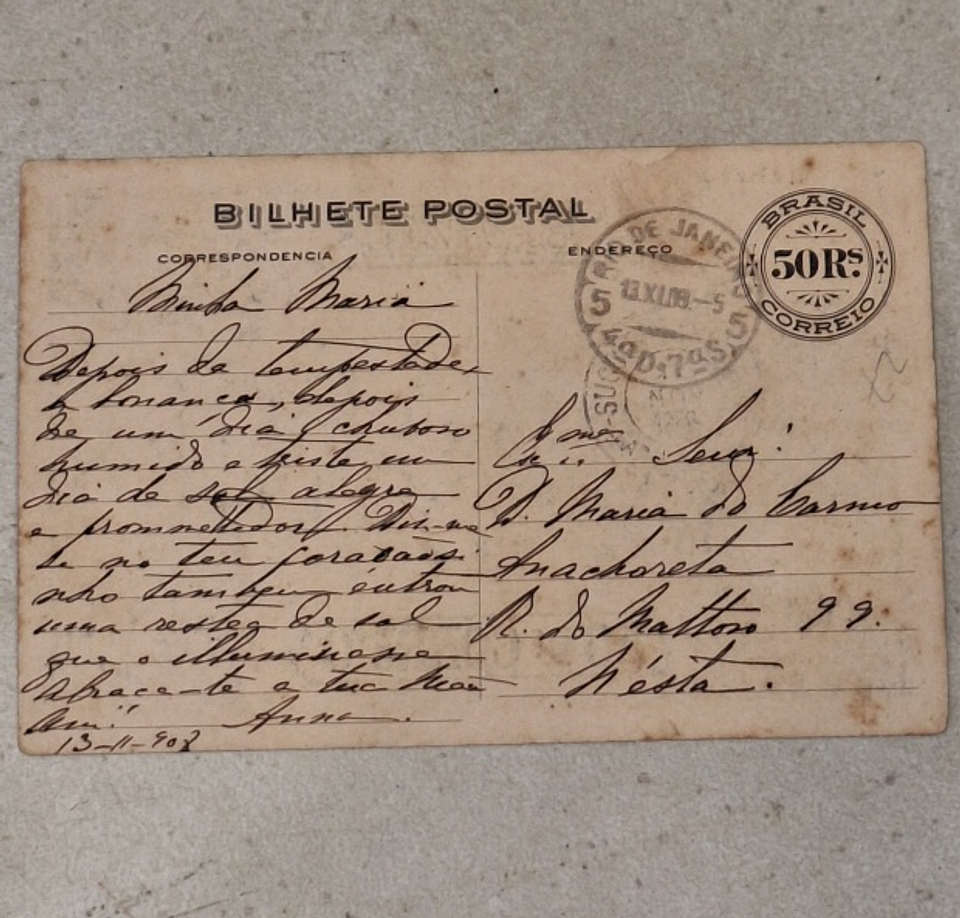 BILHETE POSTAL
CORRESPONDENCIA
ENDEREÇO
BRASIL
50 RS.
CORREIO
RIO DE JANEIRO
5 13.XI.08.-5 5
4ªD.7ªS.
Minha Maria
Depois da tempestade,
a bonança, depois
de um dia chuvoso
humido e triste um
dia de sol alegre
e prommettedor. Diz-me
se no teu coraçãosi-
nho tambem entrou
uma restea de sol
que o illuminasse
Abraça-te a tua Mãe
Am.ª Anna.
13-11-908
Ex.ma Senr.ª
D. Maria do Carmo
Anachoreta
R. do Mattoso 99.
N'ésta.